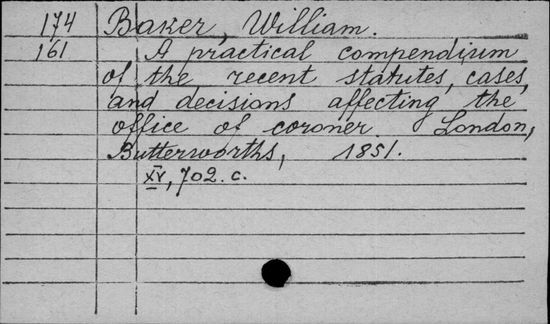 174 Baker, William.
161 A practical compendium
of the recent statutes, cases,
and decisions affecting the
office of coroner. London,
Butterworths, 1851.
XV, 702. c.